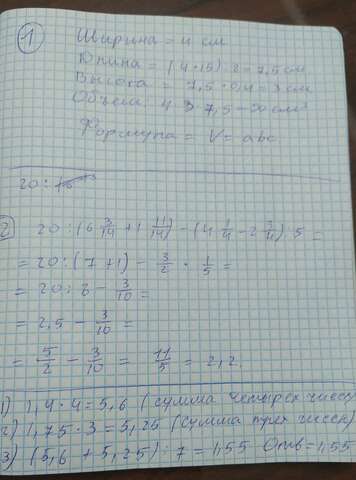 1
Ширина = 4 см
Длина = (4·15):8=7,5 см
Высота = 7,5·0,4=3 см
Объем 4·3·7,5=90 см³
Формула = V=abc
20:
2 20:(6 3/14 + 1 11/14) - (4 1/4 - 2 3/4):5=
= 20:(7+1) - 3/2 · 1/5 =
= 20:8 - 3/10 =
= 2,5 - 3/10 =
= 5/2 - 3/10 = 11/5 = 2,2
1) 1,4·4=5,6 (сумма четырех чисел)
2) 1,75·3=5,25 (сумма трех чисел)
3) (5,6+5,25):7=1,55 Отв=1,55